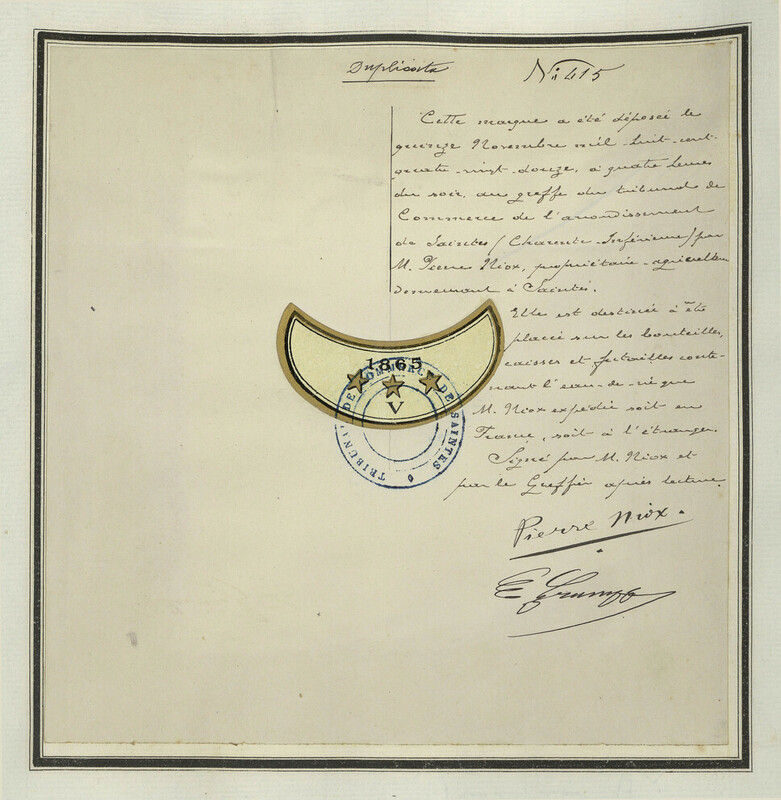 Duplicata
No 415
Cette marque a été déposée le
quinze Novembre mil-huit-cent-
quatre-vingt-douze, à quatre heures
du soir, au greffe du tribunal de
Commerce de l'arrondissement
de Saintes (Charente-Inférieure) par
M. Pierre Niox, propriétaire-agriculteur
demeurant à Saintes.
Elle est destinée à être
placée sur les bouteilles,
caisses et futailles conte-
nant l'eau-de-vie que
M. Niox expédie soit en
France, soit à l'étranger.
Signé par M. Niox et
par le Greffier après lecture.
1865
V
TRIBUNAL DE COMMERCE DE SAINTES
Pierre Niox.